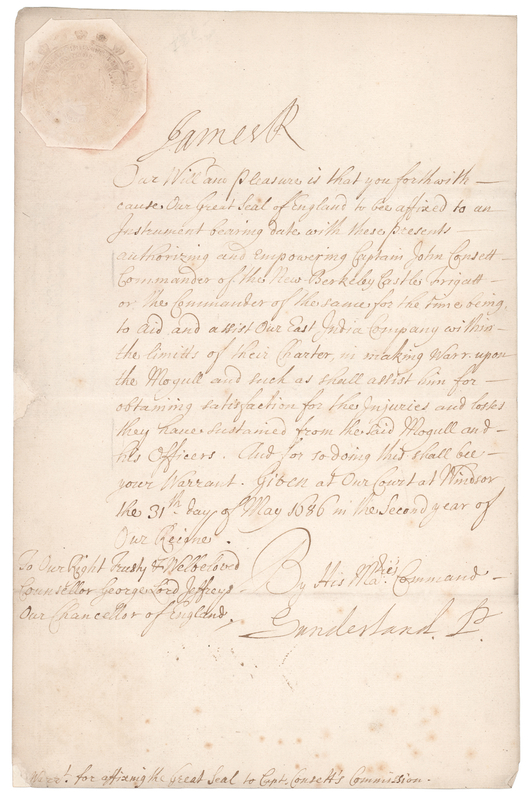 James R
Our Will and pleasure is that you forthwith —
cause Our Great Seal of England to bee affixed to an
Instrument bearing date with these presents —
authorizing and Empowering Captain John Consett —
Commander of the New Berkeley Castle frigatt —
or the Commander of the same for the time being,
to Aid and assist Our East India Company within
the limitts of their Charter, in making Warr upon
the Mogull and such as shall assist him for —
obtaining satisfaction for the Injuries and losses
they have sustained from the said Mogull and —
his Officers. And for so doing this shall bee —
your Warrant. Given at Our Court at Windsor
the 31th day of May 1686 in the Second year of
Our Reigne.
To Our Right Trusty & Welbeloved
Counsellor George Lord Jeffreys
Our Chancellor of England,
By His Maties Command —
Sunderland. P.
Warrt. for affixing the Great Seal to Capt. Consett's Commission.